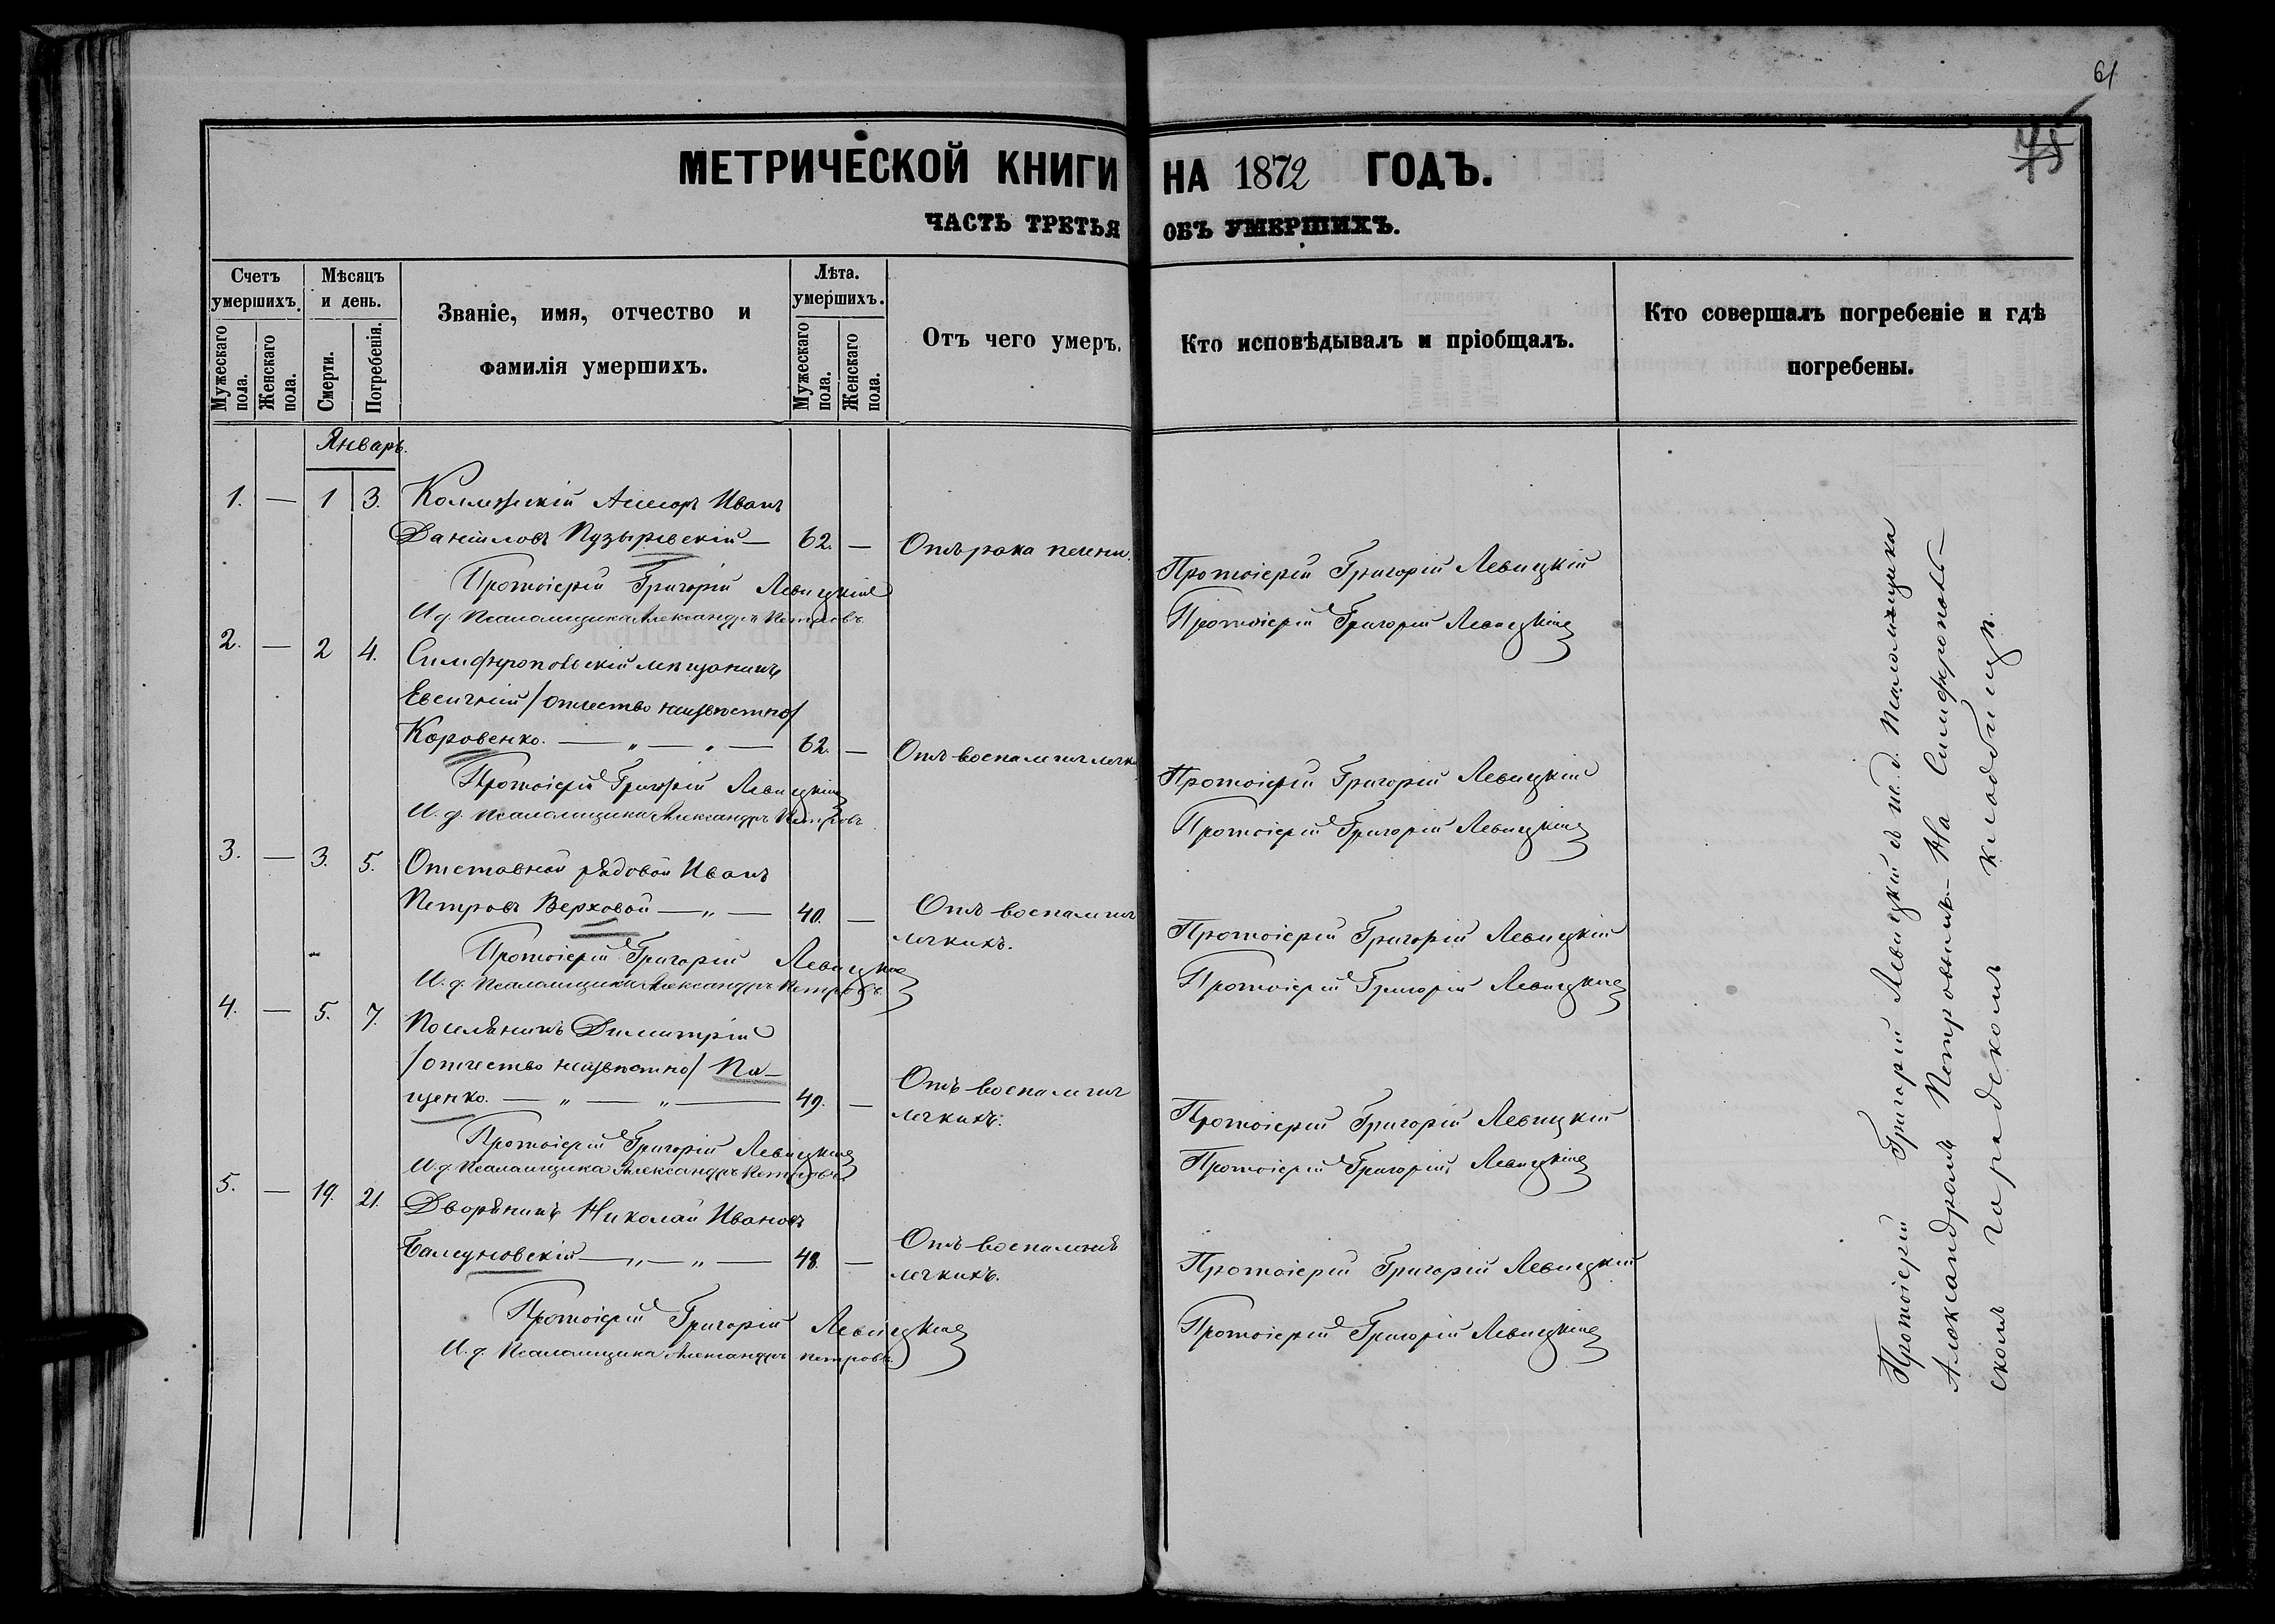 61
75
МЕТРИЧЕСКОЙ КНИГИ НА 1872 ГОДЪ.
ЧАСТЬ ТРЕТЬЯ ОБЪ УМЕРШИХЪ.
Счетъ умершихъ.
Мужескаго пола.
Женскаго пола.
Мѣсяцъ и день.
Смерти.
Погребенія.
Званіе, имя, отчество и
фамилія умершихъ.
Лѣта. умершихъ.
Мужескаго пола.
Женскаго пола.
Отъ чего умеръ.
Кто исповѣдывалъ и пріобщалъ.
Кто совершалъ погребеніе и гдѣ
погребены.
Январь.
1. — 1 3. Коллежскій Ассесоръ Иванъ
Даниловъ Пузыревскій — 62. — Отъ рака печени.
Протоіерей Григорій Левицкій
Протоіерей Григорій Левицкій
И. д. Псаломщика Александръ Петровъ
Протоіерей Григорій Левицкій
2. — 2 4. Симферопольскій мѣщанинъ
Евсигній /отчество неизвѣстно/
Коровенко. — „ — „ — 62. — Отъ воспаленія легк
Протоіерей Григорій Левицкій
Протоіерей Григорій Левицкій
И. д. Псаломщика Александръ Петровъ
Протоіерей Григорій Левицкій
3. — 3. 5. Отставной рядовой Иванъ
Петровъ Верховой — „ — 40. — Отъ воспаленія
легкихъ.
Протоіерей Григорій Левицкій
Протоіерей Григорій Левицкій
И. д. Псаломщика Александръ Петровъ.
Протоіерей Григорій Левицкій
4. — 5. 7. Поселянинъ Димитрій
/отчество неизвѣстно/ Па-
щенко. — „ — „ — 49. — Отъ воспаленія
легкихъ.
Протоіерей Григорій Левицкій
Протоіерей Григорій Левицкій
И. д. Псаломщика Александръ Петровъ
Протоіерей Григорій Левицкій
5. — 19. 21. Дворянинъ Николай Ивановъ
— „ — „ — 48. — Отъ воспаленія
легкихъ.
Протоіерей Григорій Левицкій
Протоіерей Григорій Левицкій
И. д. Псаломщика Александръ Петровъ.
Протоіерей Григорій Левицкій
Протоіерей Григорій Левицкій съ и. д. Псаломщика
Александромъ Петровымъ — На Симферополь-
скомъ городскомъ кладбищѣ.